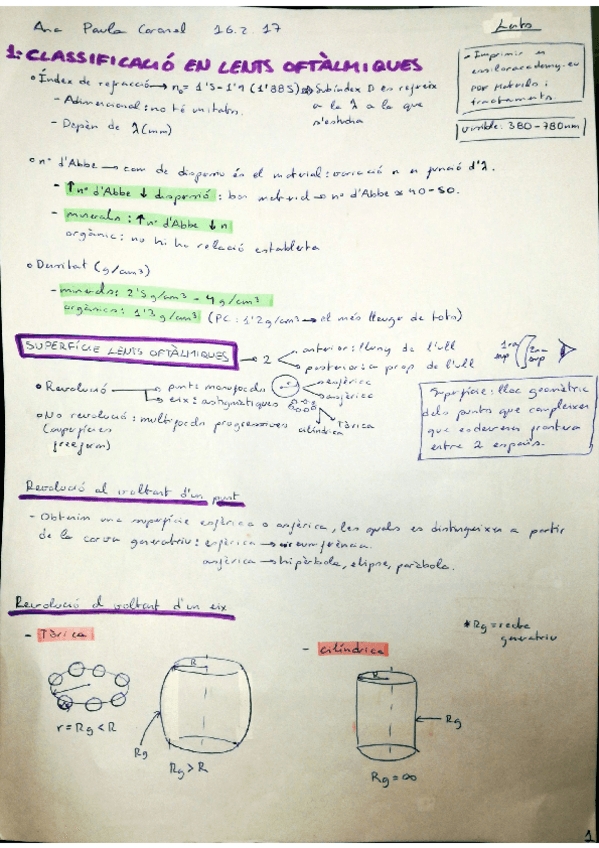 Ana Paula Coronel 16.2.17
Lents
- Imprimir en
essiloracademy.eu
PDF Materials i
tractaments.
visible: 380-780nm
1: CLASSIFICACIÓ EN LENTS OFTÀLMIQUES
o Índex de refracció → n₀ = 1'5 - 1'9 (1'885) ⇒ Subíndex D es refereix
a la λ a la que
s'estudia
- Adimensional: no té unitats.
- Depèn de λ (nm)
o nº d'Abbe → com de dispersiu és el material: variació n en funció d'λ.
- ↑ nº d'Abbe ↓ dispersió: bon material → nº d'Abbe ≈ 40-50.
- minerals: ↑ nº d'Abbe ↓ n
orgànic: no hi ha relació establerta
o Densitat (g/cm³)
- minerals: 2'5g/cm³ - 4g/cm³
orgànics: 1'3g/cm³ (PC: 1'2g/cm³ → el més lleuger de tots)
SUPERFÍCIE LENTS OFTÀLMIQUES → 2
anterior: lluny de l'ull
posterior: a prop de l'ull
1ra sup
2na sup
o Revolució
punt: monofocals
esfèrica
asfèrica
eix: astigmàtiques
cilíndrica
Tòrica
o No revolució: multifocals progressives
(superfícies
freeform)
Superfície: lloc geomètric
dels punts que compleixen
que esdevenen frontera
entre 2 espais.
Revolució al voltant d'un punt
- Obtenim una superfície esfèrica o asfèrica, les quals es distingeixen a partir
de la corva generatriu: esfèrica → circumferència.
asfèrica → hipèrbola, elipse, paràbola.
Revolució al voltant d'un eix
- Tòrica
- cilíndrica
*Rg = radi
generatriu
r = Rg < R
R
Rg
Rg > R
R
Rg
Rg = ∞
1